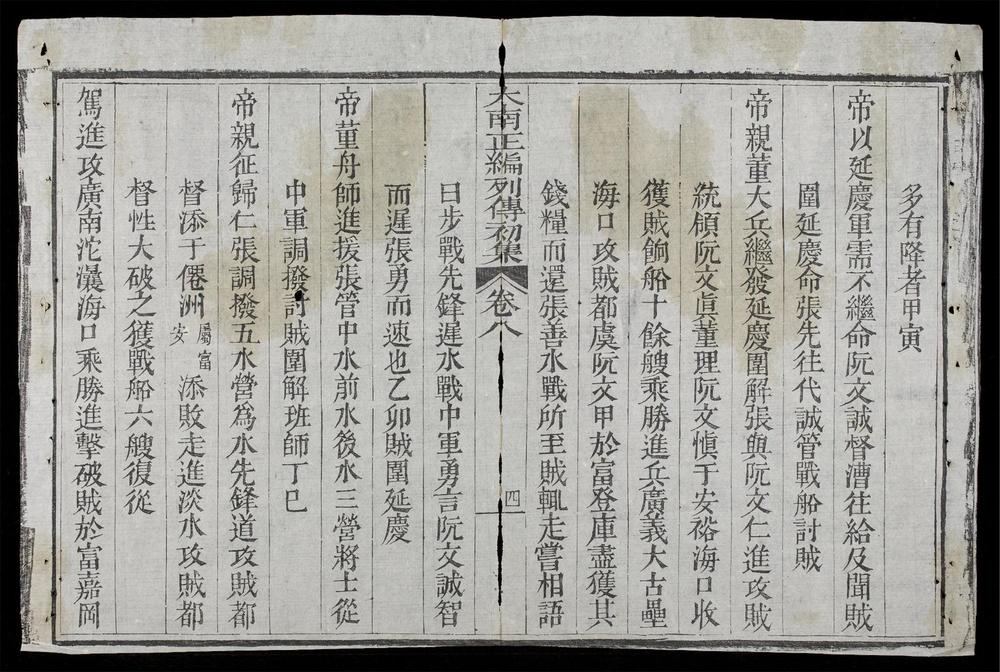 多有降者甲寅
帝以延慶軍需不繼命阮文誠督漕往給及聞賊
圍延慶命張先往代誠管戰船討賊
帝親董大兵繼發延慶圍解張與阮文仁進攻賊
統領阮文真董理阮文慎于安裕海口收
獲賊餉船十餘艘乘勝進兵廣義大古壘
海口攻賊都虞阮文甲於富登庫盡獲其
錢糧而還張善水戰所至賊輒走嘗相語
大南正編列傳初集 卷八 四
曰步戰先鋒遲水戰中軍勇言阮文誠智
而遲張勇而速也乙卯賊圍延慶
帝董舟師進援張管中水前水後水三營將士從
中軍調撥討賊圍解班師丁巳
帝親征歸仁張調撥五水營為水先鋒道攻賊都
督添于僊洲屬富安添敗走進淡水攻賊都
督性大破之獲戰船六艘復從
駕進攻廣南沱㶞海口乘勝進擊破賊於富嘉岡